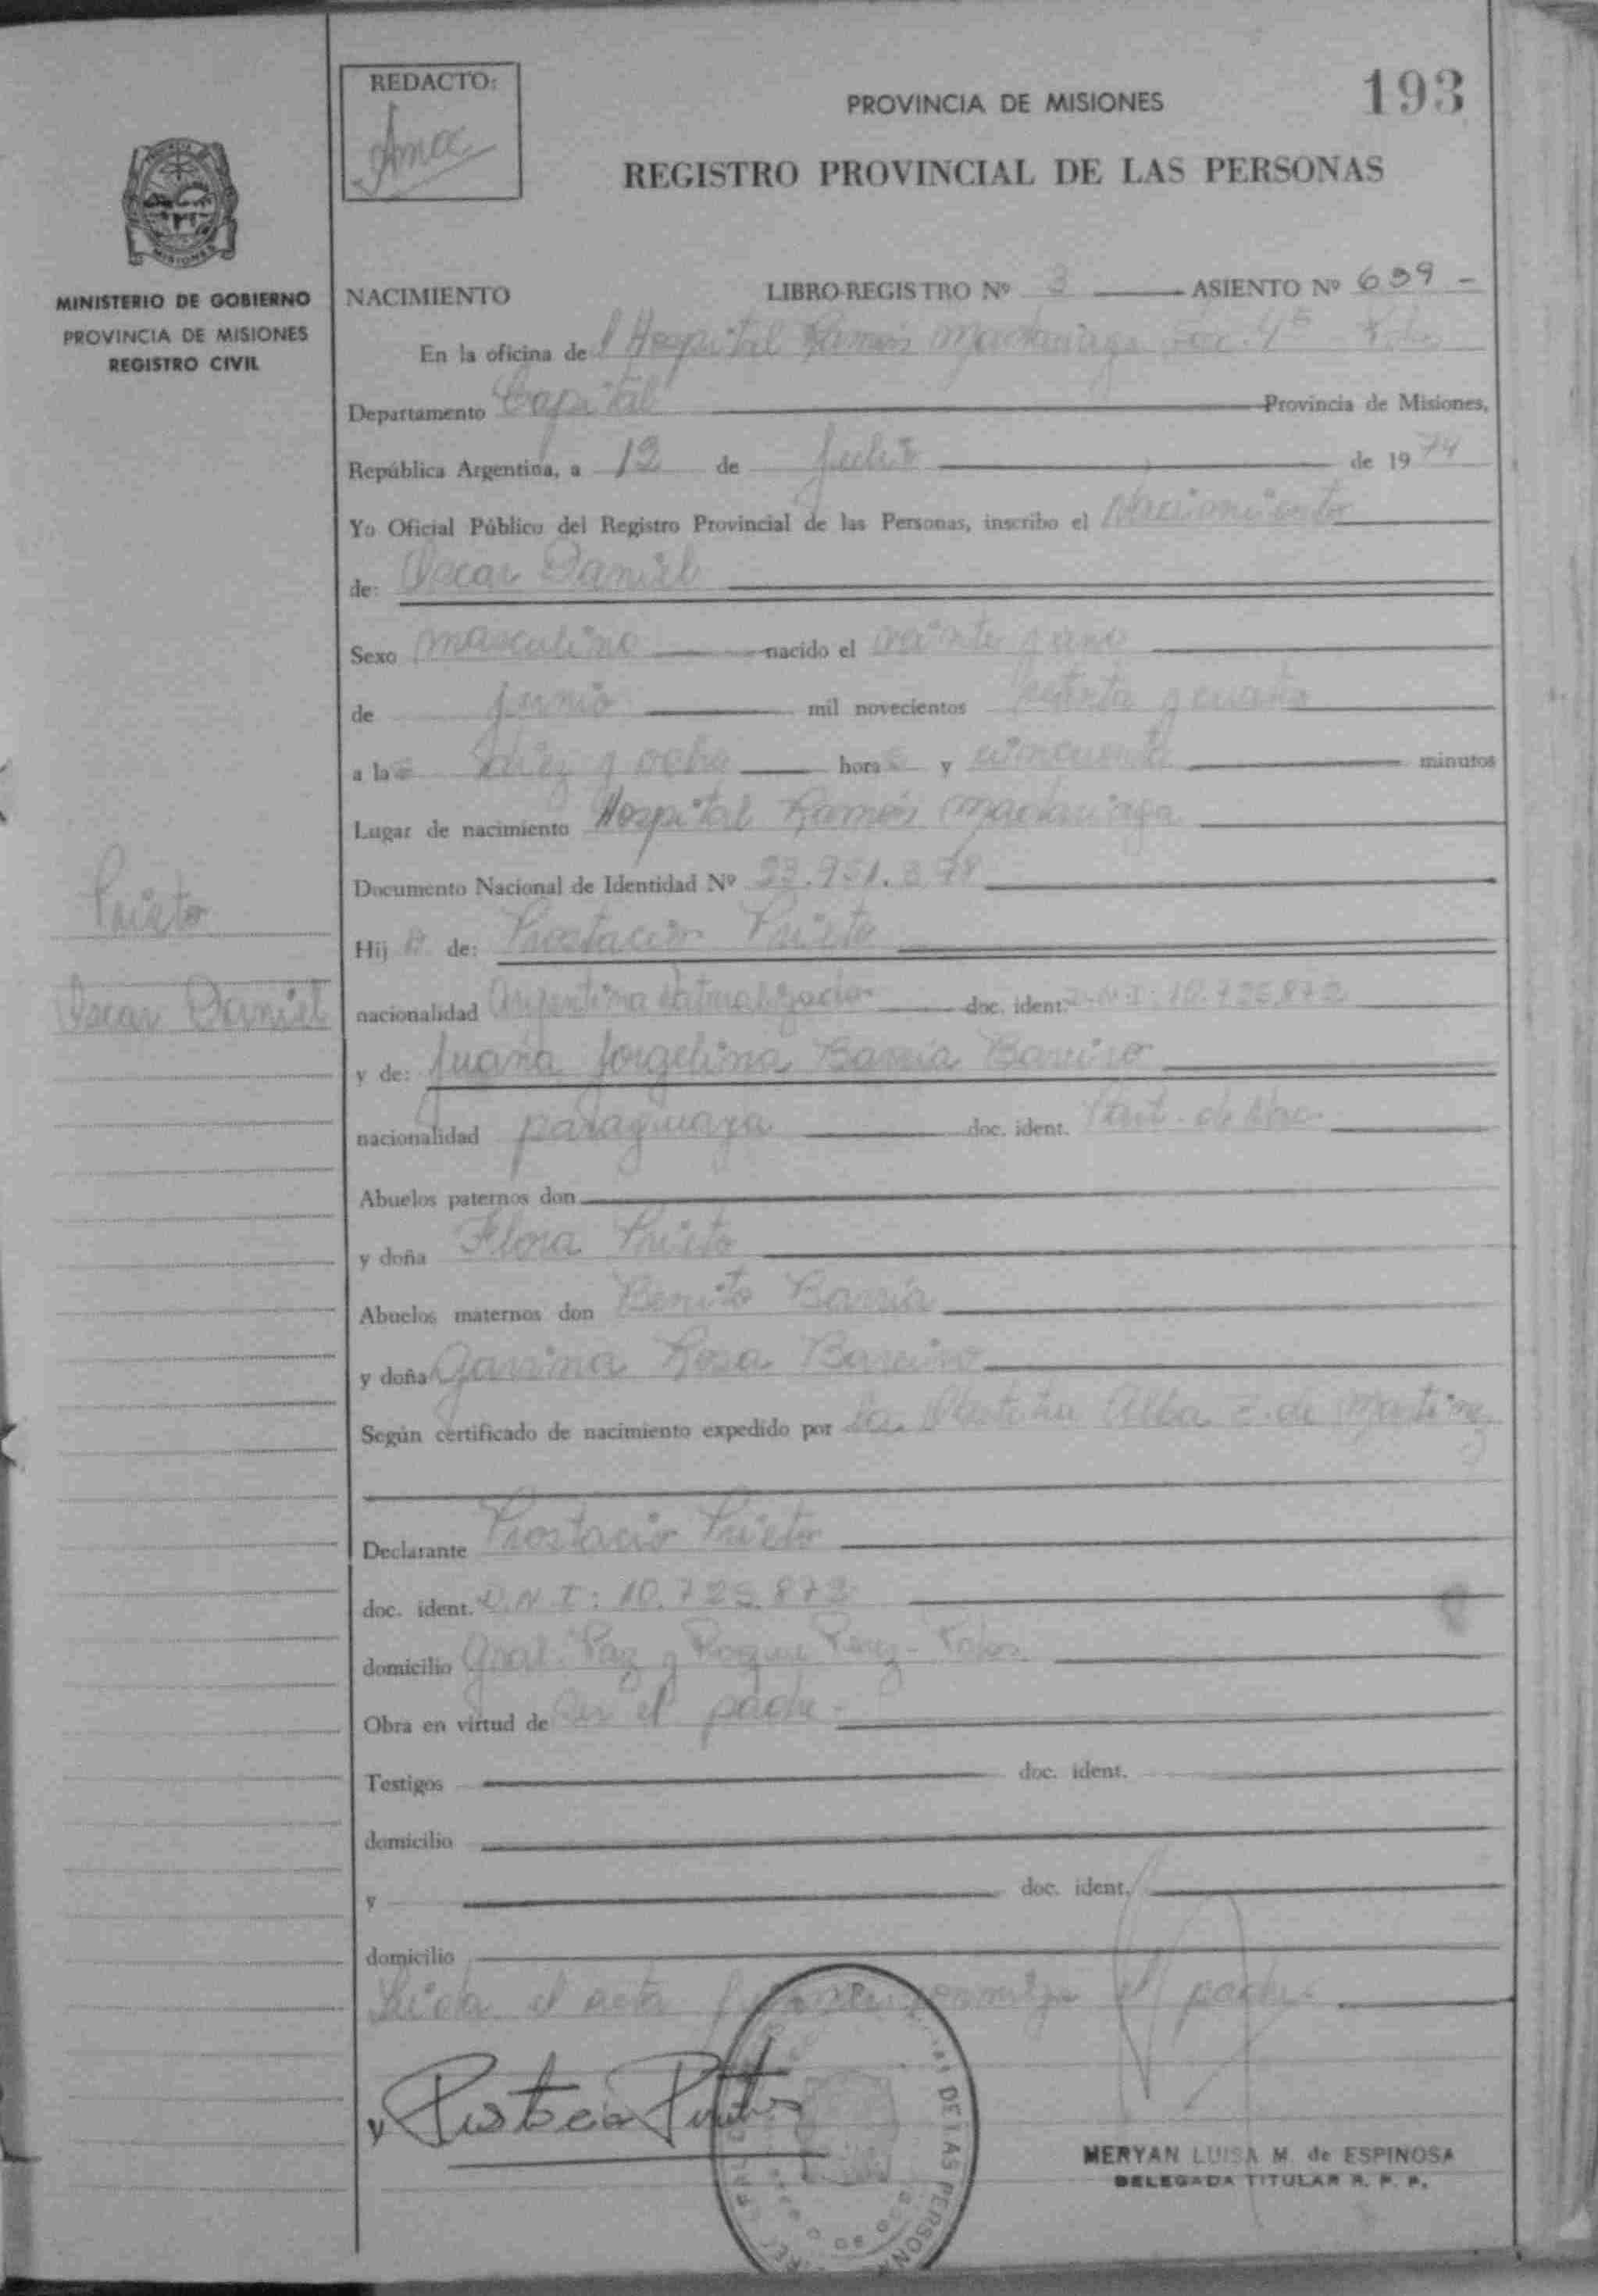 193
REDACTO:
PROVINCIA DE MISIONES
REGISTRO PROVINCIAL DE LAS PERSONAS
MISIONES
MINISTERIO DE GOBIERNO
PROVINCIA DE MISIONES
REGISTRO CIVIL
NACIMIENTO LIBRO-REGISTRO Nº 3 ASIENTO Nº 639 -
En la oficina de l Hospital Ramón Madariaga
Departamento Capital Provincia de Misiones,
República Argentina, a 12 de Julio de 1974
Yo Oficial Público del Registro Provincial de las Personas, inscribo el Nacimiento
de: Oscar Daniel
Sexo masculino nacido el veinte y uno
de junio mil novecientos setenta y cuatro
a las diez y ocho horas y cincuenta minutos
Lugar de nacimiento Hospital Ramón Madariaga
Documento Nacional de Identidad Nº
Prieto
Hijo de: Prostacio Prieto
Oscar Daniel
nacionalidad Argentina naturalizado doc. ident. D.N.I: 10.725.872
y de: Juana Jorgelina Barreiro
nacionalidad paraguaya doc. ident. Part. de Nac.
Abuelos paternos don
y doña Flora Prieto
Abuelos maternos don Benito
y doña Rosa Barreiro
Según certificado de nacimiento expedido por la Obstetra Alba E. de Martinez
Declarante Prostacio Prieto
doc. ident. D.N.I: 10.725.872
domicilio Gral. Paz y Roque Perez -
Obra en virtud de ser el padre -
Testigos doc. ident.
domicilio
y doc. ident.
domicilio
Leida el acta firmada conmigo el padre
DE LAS PERSONAS
MERYAN LUISA M. de ESPINOSA
DELEGADA TITULAR R. P. P.